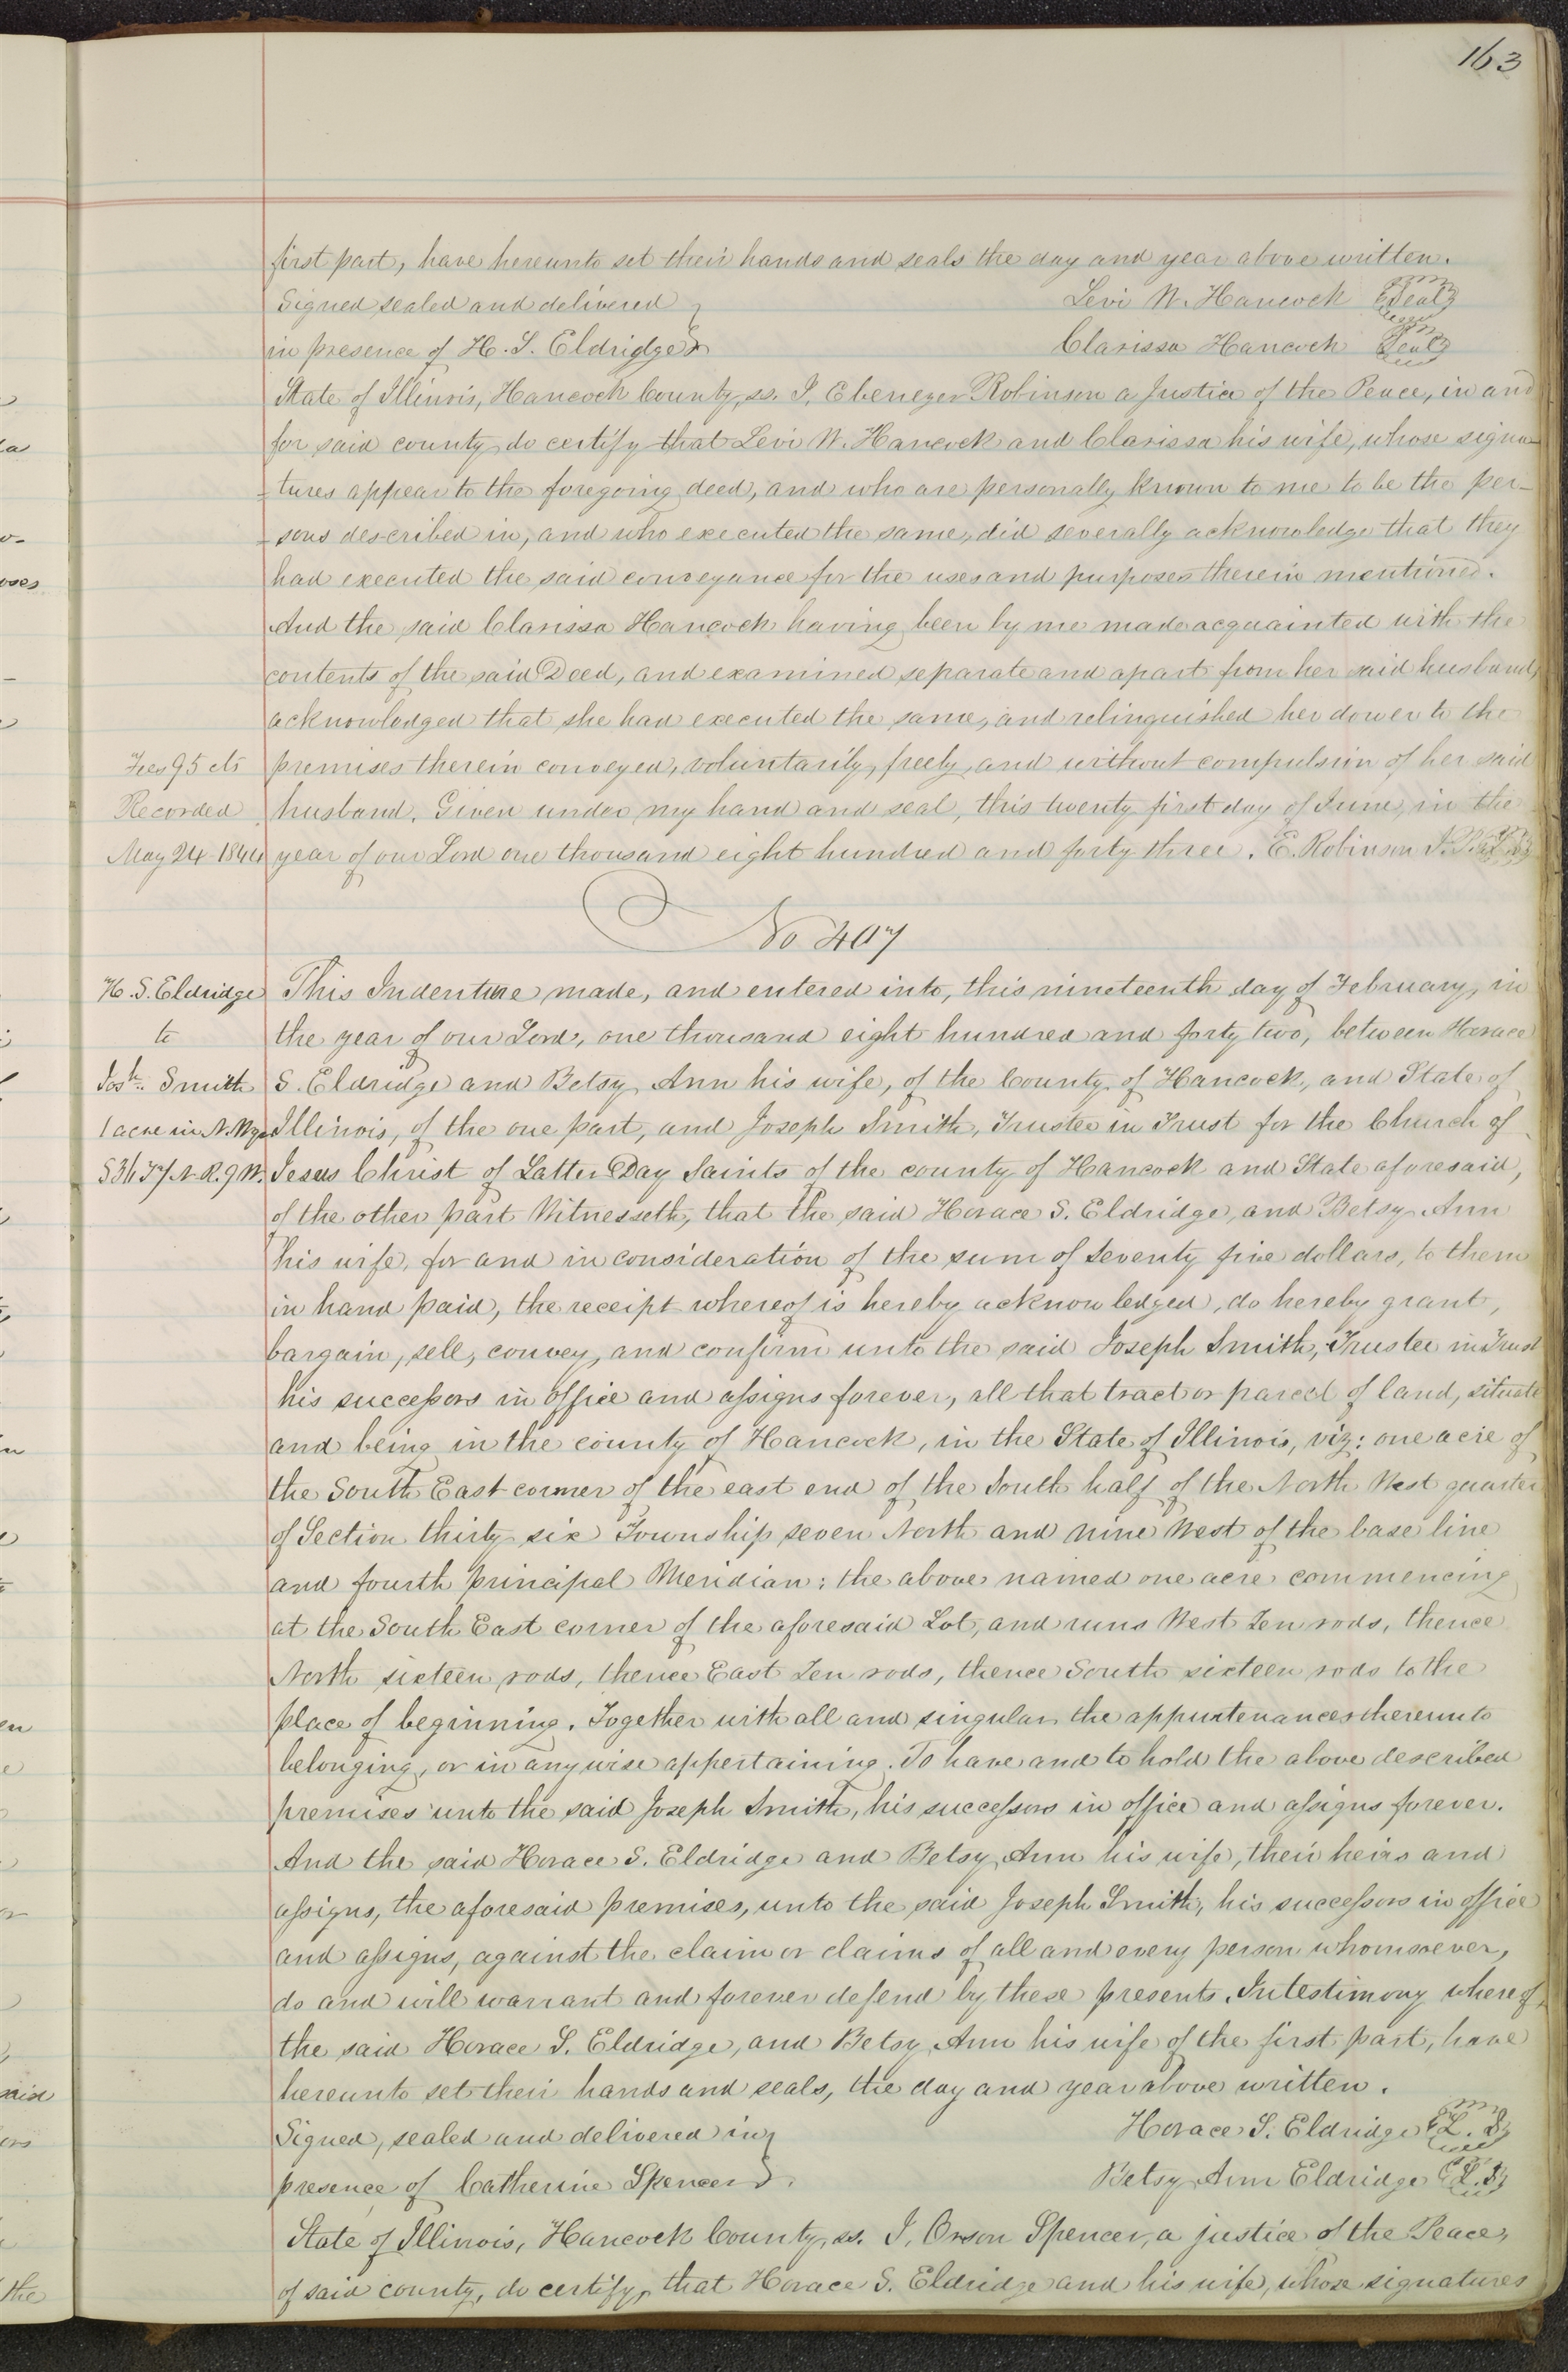 163
first part, have hereunto set their hands and seals the day and year above written.
Signed sealed and delivered } Levi W. Hancock {Seal}
in presence of H. S. Eldridge } Clarissa Hancock {Seal}
State of Illinois, Hancock County, ss. I, Ebenezer Robinson a Justice of the Peace, in and
for said county do certify that Levi W. Hancock and Clarissa his wife, whose signa-
-tures appear to the foregoing deed, and who are personally known to me to be the per-
-sons described in, and who executed the same, did severally acknowledge that they
had executed the said conveyance for the uses and purposes therein mentioned.
And the said Clarissa Hancock having been by me made acquainted with the
contents of the said Deed, and examined separate and apart from her said husband,
acknowledged that she had executed the same, and relinquished her dower to the
Fees 95 cts premises therein conveyed, voluntarily, freely, and without compulsion of her said
Recorded husband. Given under my hand and seal, this twenty first day of June, in the
May 24 1844 year of our Lord one thousand eight hundred and forty three. E. Robinson J.P. {L.S.}
No 407
H. S. Eldridge This Indenture made, and entered into, this nineteenth day of February, in
to the year of our Lord, one thousand eight hundred and forty two, between Horace
Josh. Smith S. Eldridge and Betsy Ann his wife, of the County of Hancock, and State of
1 acre in N.W.qr Illinois, of the one part, and Joseph Smith, Trustee in Trust for the Church of
S 36 T 7 N. R. 9 W. Jesus Christ of Latter Day Saints of the county of Hancock and State aforesaid,
of the other part Witnesseth, that the said Horace S. Eldridge, and Betsy Ann
his wife, for and in consideration of the sum of Seventy five dollars, to them
in hand paid, the receipt whereof is hereby acknowledged, do hereby grant,
bargain, sell, convey, and confirm unto the said Joseph Smith, Trustee in Trust
his successors in office and assigns forever, all that tract or parcel of land, situate
and being in the county of Hancock, in the State of Illinois, viz: one acre of
the South East corner of the east end of the South half of the North West quarter
of Section thirty six Township seven North and nine West of the base line
and fourth principal Meridian; the above named one acre commencing
at the South East corner of the aforesaid Lot, and runs West Ten rods, thence
North sixteen rods, thence East Ten rods, thence South sixteen rods to the
place of beginning. Together with all and singular the appurtenances thereunto
belonging, or in anywise appertaining. To have and to hold the above described
premises unto the said Joseph Smith, his successors in office and assigns forever.
And the said Horace S. Eldridge and Betsy Ann his wife, their heirs and
assigns, the aforesaid premises, unto the said Joseph Smith, his successors in office
and assigns, against the claim or claims of all and every person whomsoever,
do and will warrant and forever defend by these presents. In testimony whereof,
the said Horace S. Eldridge, and Betsy Ann his wife of the first part, have
hereunto set their hands and seals, the day and year above written.
Signed, sealed and delivered in } Horace S. Eldridge {L. S.}
presence of Catherine Spencer } Betsy Ann Eldridge {L.S.}
State of Illinois, Hancock County, ss. I, Orson Spencer, a justice of the Peace,
of said county, do certify, that Horace S. Eldridge and his wife, whose signatures